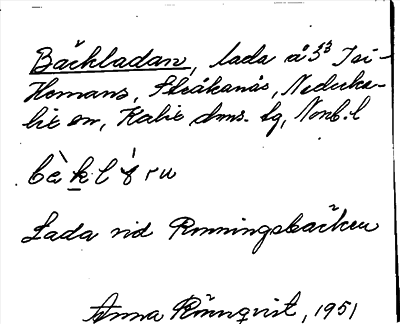 Bäckladan, lada å 3³ Isi-
Homans, Stråkanäs, Nederka-
lix sn, Kalix dms. tg, Nonb. l
Lada vid Rönningsbäcken
Anna Rönnqvist, 1951